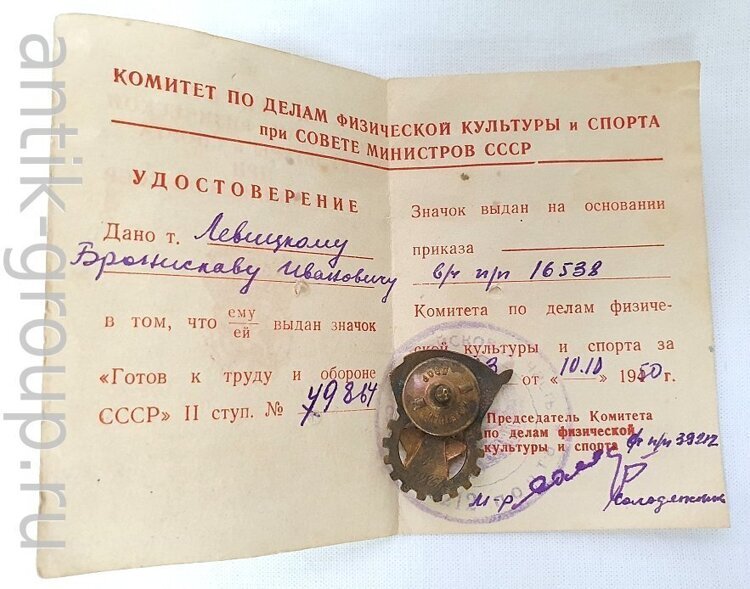 КОМИТЕТ ПО ДЕЛАМ ФИЗИЧЕСКОЙ КУЛЬТУРЫ и СПОРТА
при СОВЕТЕ МИНИСТРОВ СССР
УДОСТОВЕРЕНИЕ
Дано т. Левицкому
Брониславу Ивановичу
в том, что ему
ей выдан значок
«Готов к труду и обороне
СССР» II ступ. №
Значок выдан на основании
приказа
в/ч п/п 16538
Комитета по делам физиче-
ской культуры и спорта за
от «10.10» 1950 г.
Председатель Комитета
по делам физической
культуры и спорта п/п 39212
М-р
antik-group.ru